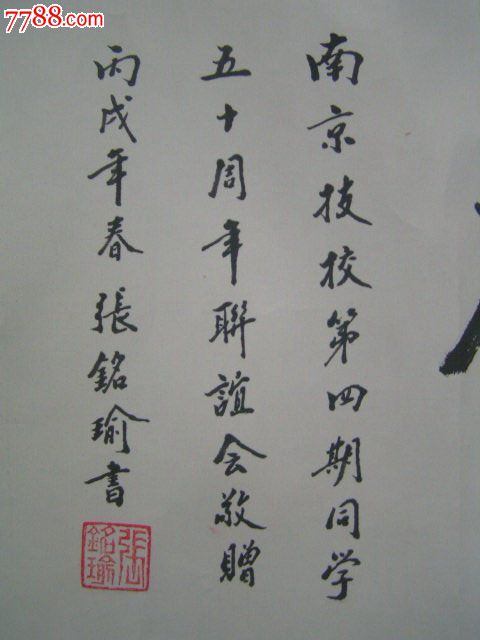 7788.com
南京技校第四期同学
五十周年聯誼会敬贈
丙戌年春張銘瑜書
張銘瑜